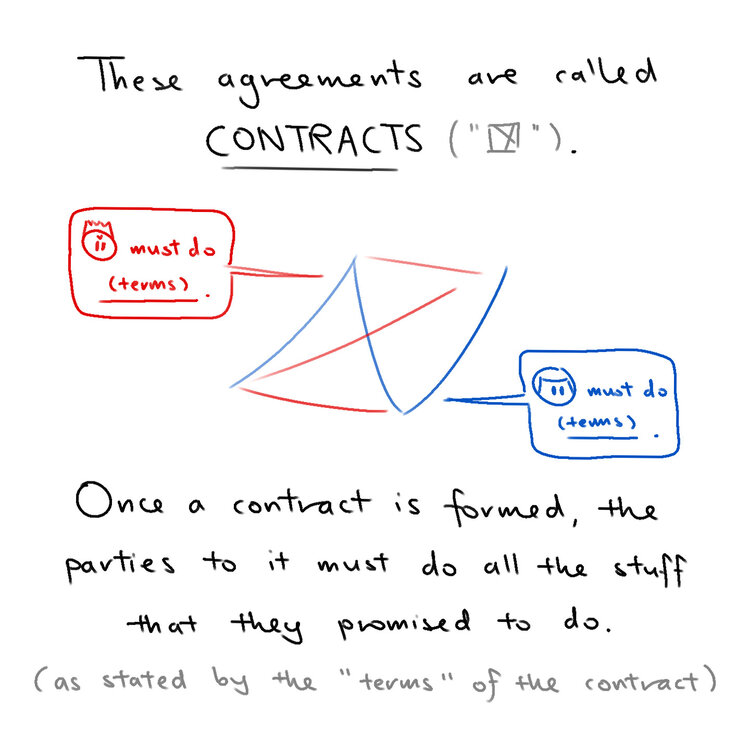 These agreements are called
CONTRACTS (" ").
must do
(terms).
must do
(terms).
Once a contract is formed, the
parties to it must do all the stuff
that they promised to do.
(as stated by the "terms" of the contract)